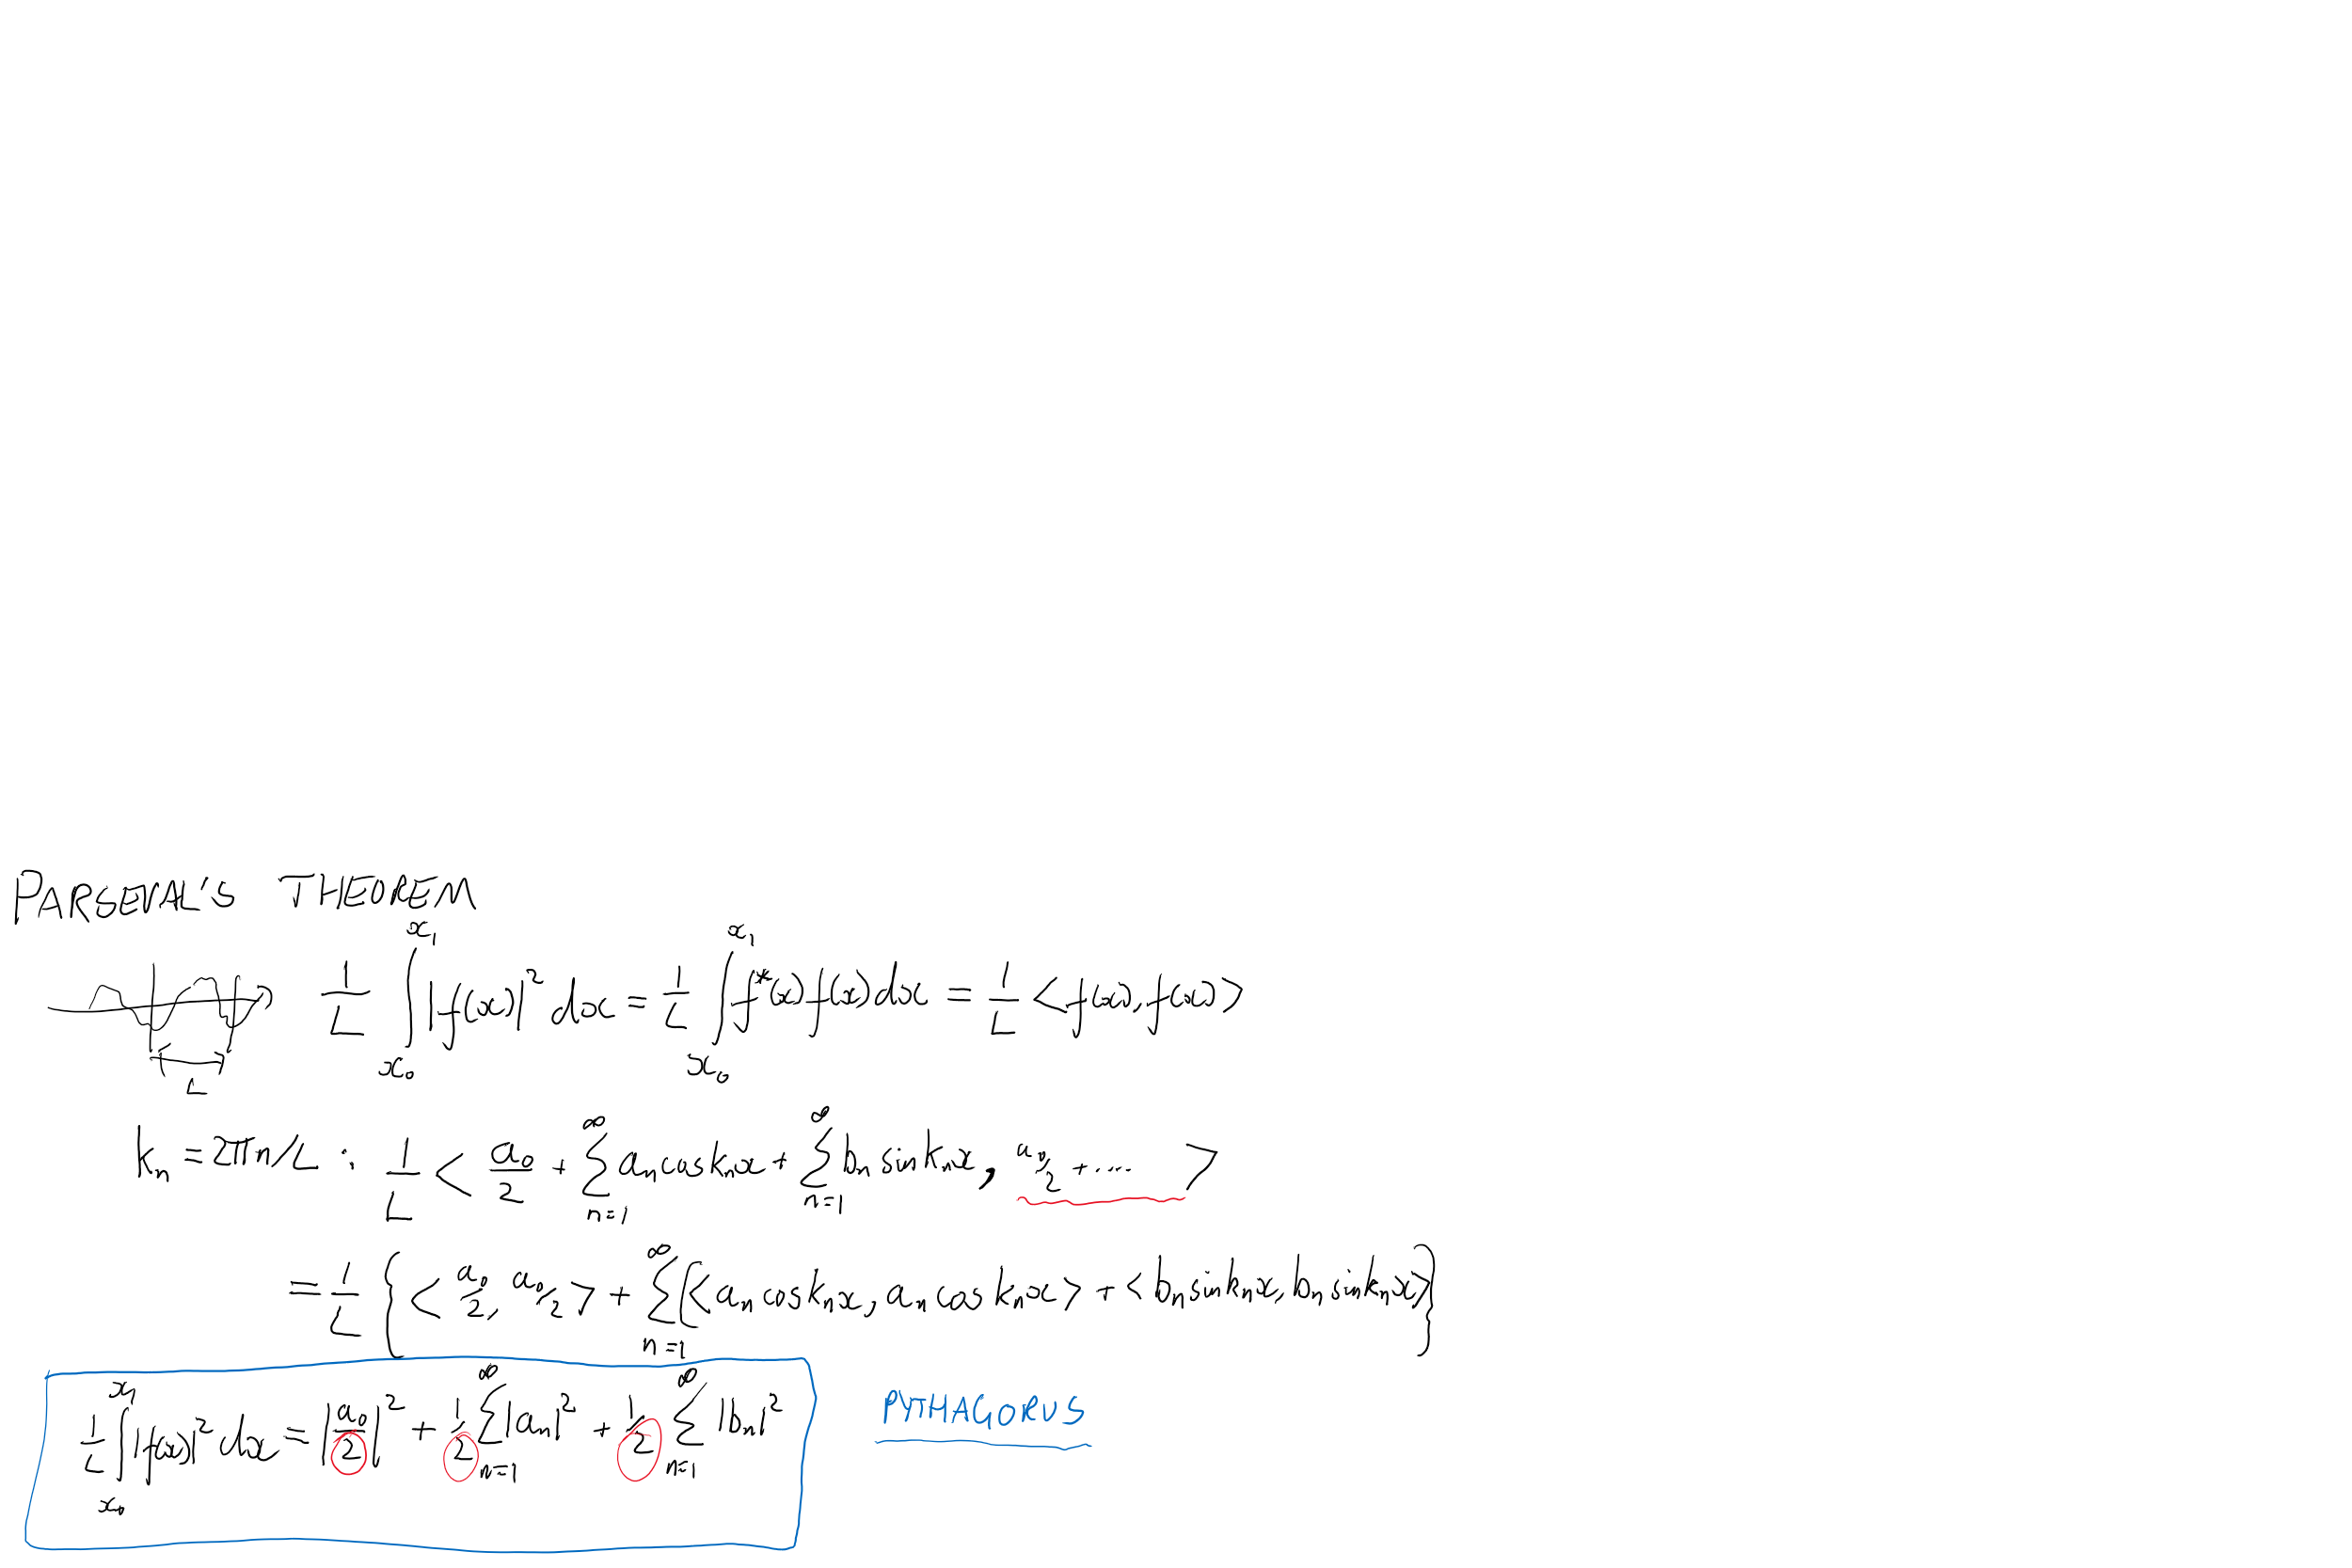 PARSEVAL'S THEOREM
L
1/L ∫_{x₀}^{x₁} |f(x)|² dx = 1/L ∫_{x₀}^{x₁} f*(x) f(x) dx = 1/L <f(x), f(x)>
kₙ = 2πn/L : 1/L < a₀/2 + ∑_{n=1}^{∞} aₙ cos kₙx + ∑_{n=1}^{∞} bₙ sin kₙx, a₀/2 + .... >
= 1/L { < a₀/2, a₀/2 > + ∑_{n=1}^{∞} ( < aₙ cos kₙx, aₙ cos kₙx > + < bₙ sin kₙx, bₙ sin kₙx > }
1/L ∫_{x₀}^{x₁} |f(x)|² dx = |a₀/2|² + 1/2 ∑_{n=1}^{∞} |aₙ|² + 1/2 ∑_{n=1}^{∞} |bₙ|²
PYTHAGORUS